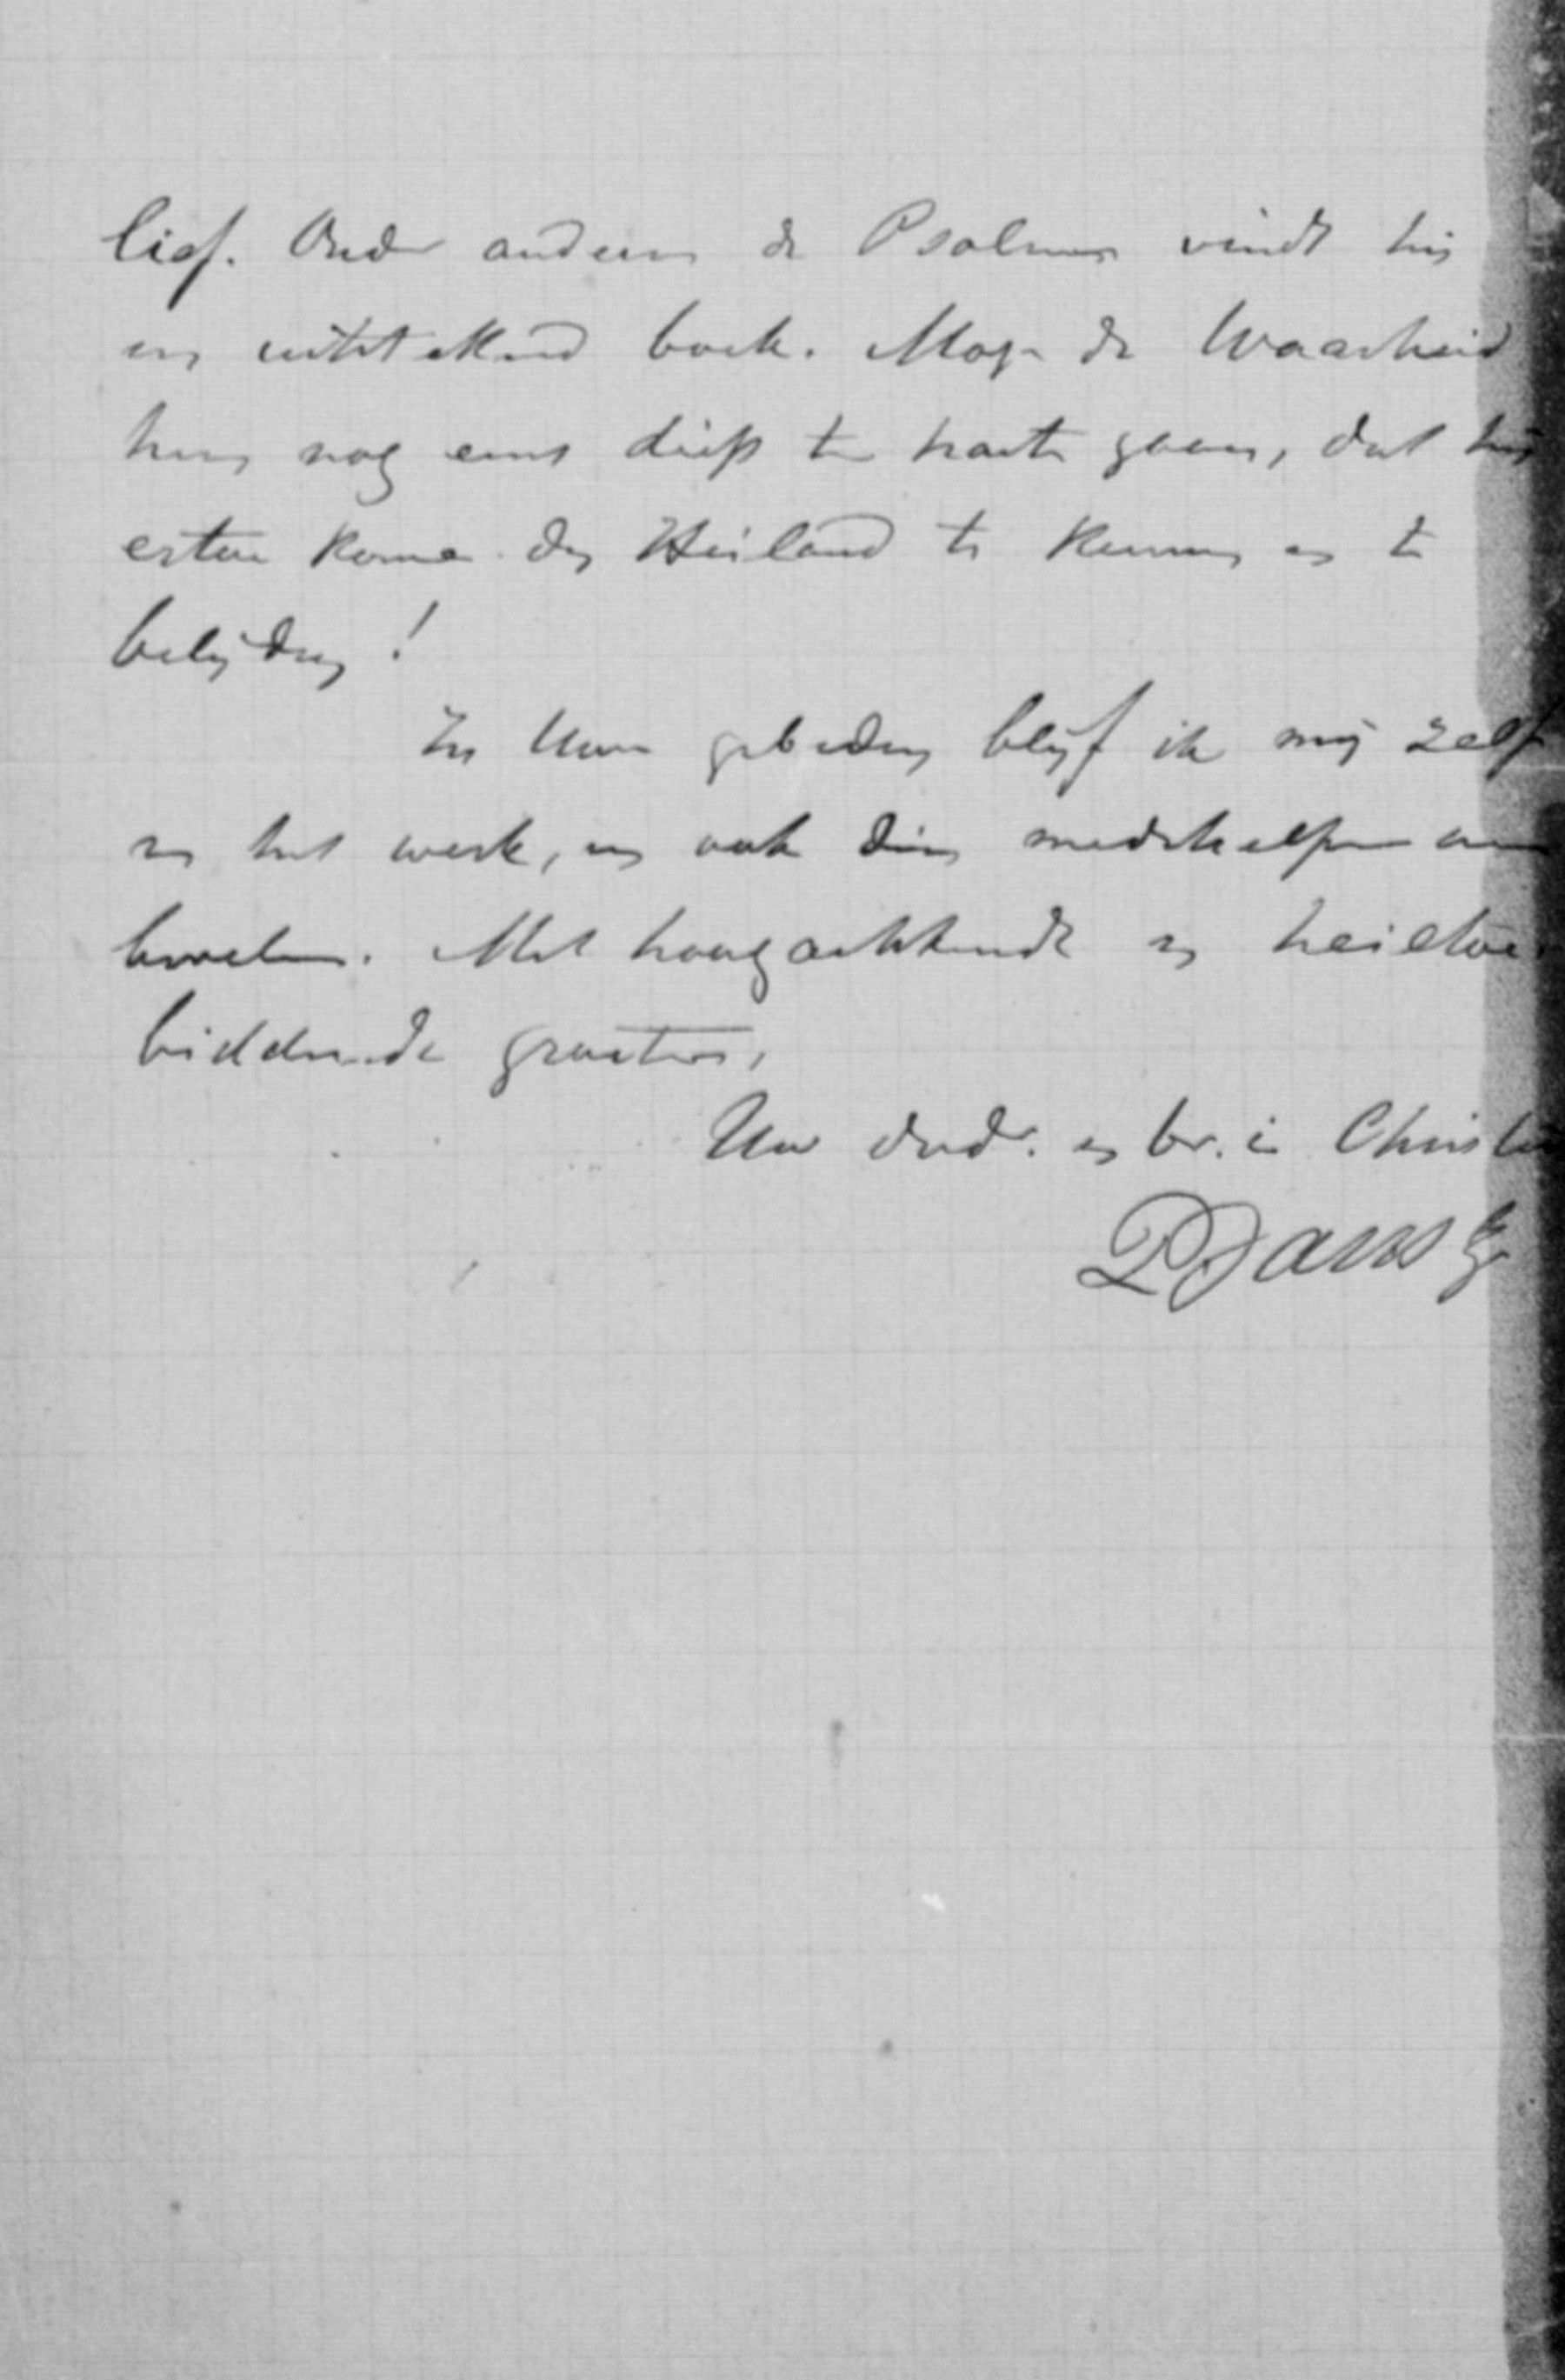 lief. Onder anderen de Psalmen vindt hij
een uitstekend boek. Moge de Waarheid
hem nog eens diep te harte gaan, dat hij
ertoe kome den Heiland te kennen en te
belijden!
In Uwe gebeden blijf ik mij zelf
en het werk, en ook dien medehelper aan
bevelen. Met hoogachtende en heiltoe
biddende groeten,
Uw dnd. en br. in Christus